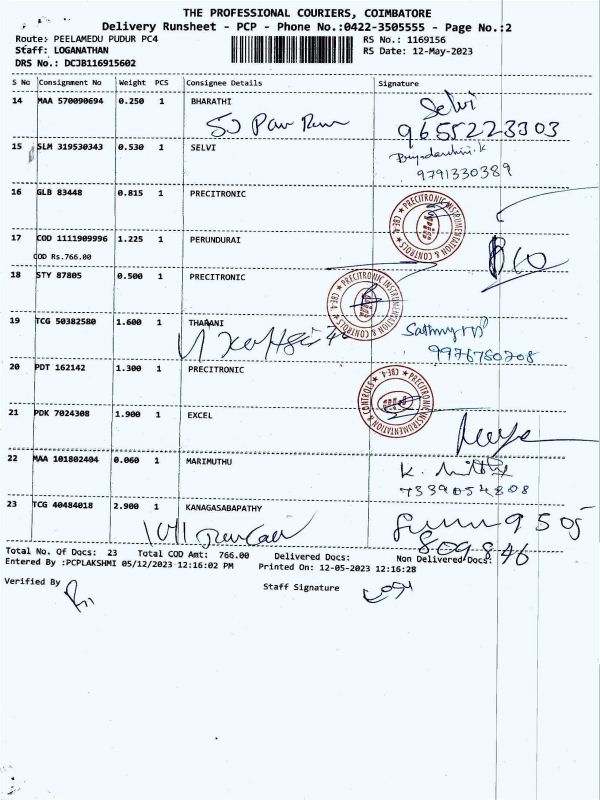 THE PROFESSIONAL COURIERS, COIMBATORE
Delivery Runsheet - PCP - Phone No.:0422-3505555 - Page No.:2
Route: PEELAMEDU PUDUR PC4 RS No.: 1169156
Staff: LOGANATHAN RS Date: 12-May-2023
DRS No.: DCJB116915602
S No Consignment No Weight PCS Consignee Details Signature
14 MAA 570090694 0.250 1 BHARATHI Selvi
9655223303
15 SLM 319530343 0.530 1 SELVI
9791330389
16 GLB 83448 0.815 1 PRECITRONIC
PRECITRONIC INSTRUMENTATION & CONTROLS ★ CBE-4 ★
17 COD 1111909996 1.225 1 PERUNDURAI
COD Rs.766.00
18 STY 87805 0.500 1 PRECITRONIC
PRECITRONIC INSTRUMENTATION & CONTROLS ★ CBE-4 ★
19 TCG 50382580 1.600 1 THARANI
9976760708
20 PDT 162142 1.300 1 PRECITRONIC
PRECITRONIC INSTRUMENTATION & CONTROLS ★ CBE-4 ★
21 PDK 7024308 1.900 1 EXCEL
22 MAA 101802404 0.060 1 MARIMUTHU
7339054808
23 TCG 40484018 2.900 1 KANAGASABAPATHY
9505
809846
Total No. Of Docs: 23 Total COD Amt: 766.00 Delivered Docs: Non Delivered Docs:
Entered By :PCPLAKSHMI 05/12/2023 12:16:02 PM Printed On: 12-05-2023 12:16:28
Verified By Staff Signature